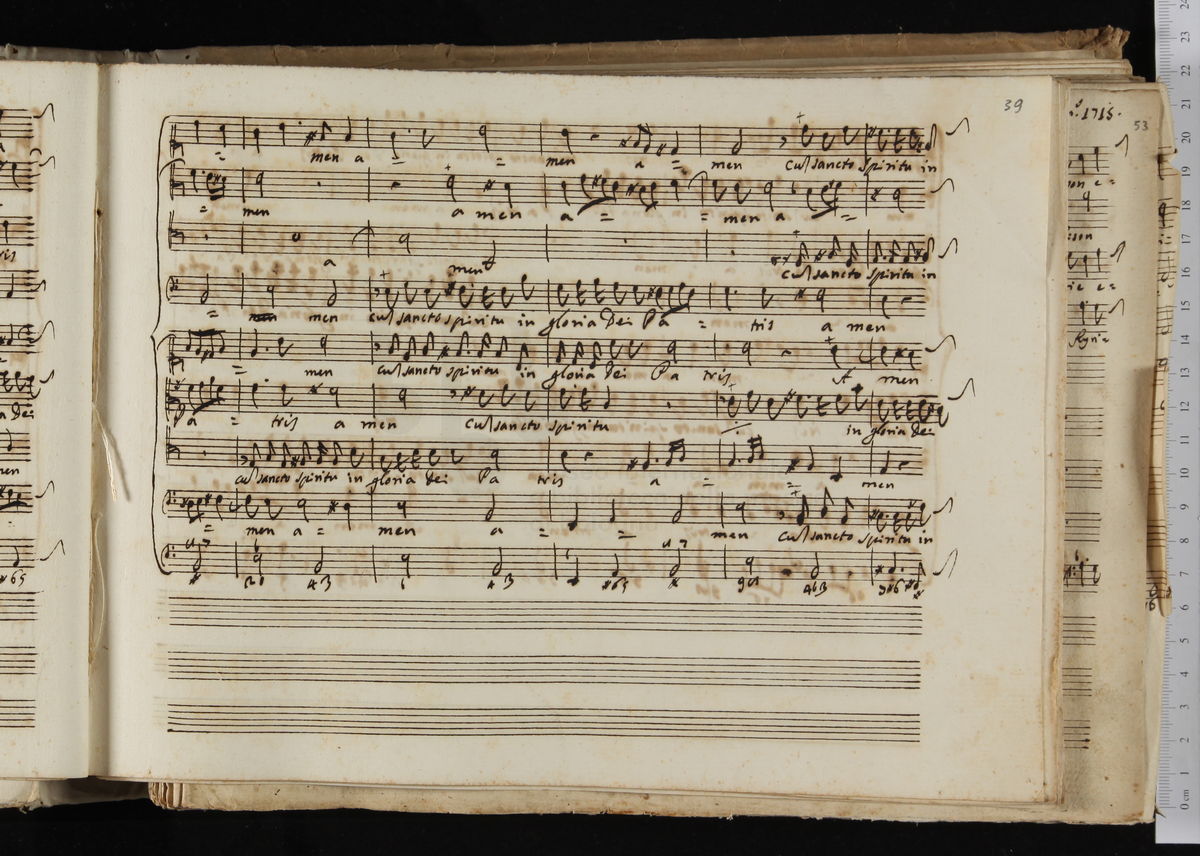 39
= men a = = men a = men Cu[m] sancto spiritu in
= men a men a = = men a =
a men Cu[m] sancto spiritu in
= men Cu[m] sancto spiritu in gloria Dei Pa = tris a men
= men Cu[m] sancto spiritu in gloria dei Pa tris A men
Pa = tris a men Cu[m] sancto spiritu in gloria Dei
Cu[m] sancto spiritu in gloria dei Pa tris a = = men
= men a = men a = = men Cu[m] sancto spiritu in
1715.
53